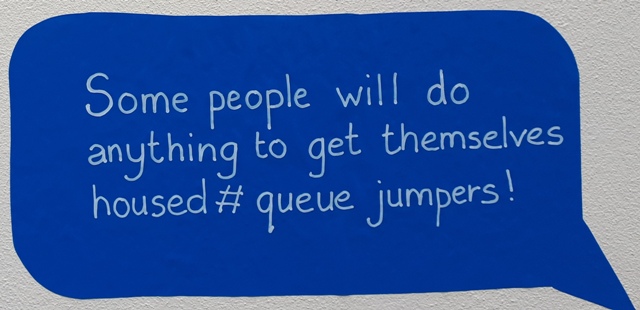 Some people will do
anything to get themselves
housed# queue jumpers!